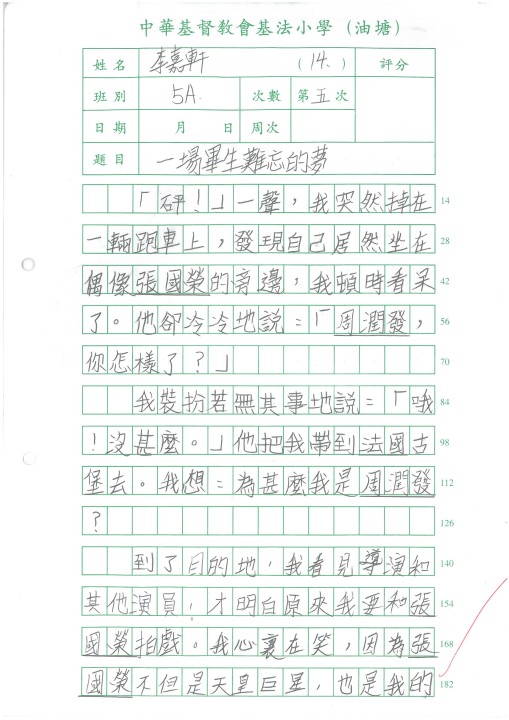 中華基督教會基法小學（油塘）
姓名 李嘉軒 （14.） 評分
班別 5A. 次數 第五次
日期 月 日 周次
題目 一場畢生難忘的夢
「砰！」一聲，我突然掉在 14
一輛跑車上，發現自己居然坐在 28
偶像張國榮的旁邊，我頓時看呆 42
了。他卻冷冷地說：「周潤發， 56
你怎樣了？」 70
我裝扮若無其事地說：「哦 84
！沒甚麼。」他把我帶到法國古 98
堡去。我想：為甚麼我是周潤發 112
？ 126
到了目的地，我看見導演和 140
其他演員，才明白原來我要和張 154
國榮拍戲。我心裏在笑，因為張 168
國榮不但是天皇巨星，也是我的 182